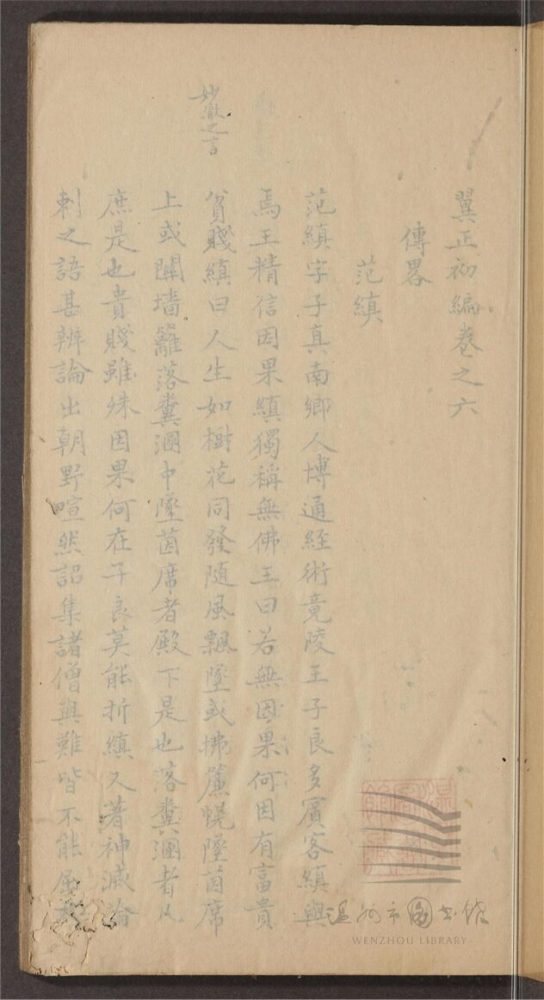 翼正初編卷之六
傳畧
范縝
范縝字子真南鄉人博通經術竟陵王子良多賓客縝與
焉王精信因果縝獨稱無佛王曰若無因果何因有富貴
貧賤縝曰人生如樹花同發隨風飄墮或拂簾幌墮茵席
上或關墻籬落糞溷中墮茵席者殿下是也落糞溷者凡
庶是也貴賤雖殊因果何在子良莫能折縝又著神滅論
刺之語甚辨論出朝野喧然詔集諸僧與難皆不能屈
之言
温州市图书馆
WENZHOU LIBRARY